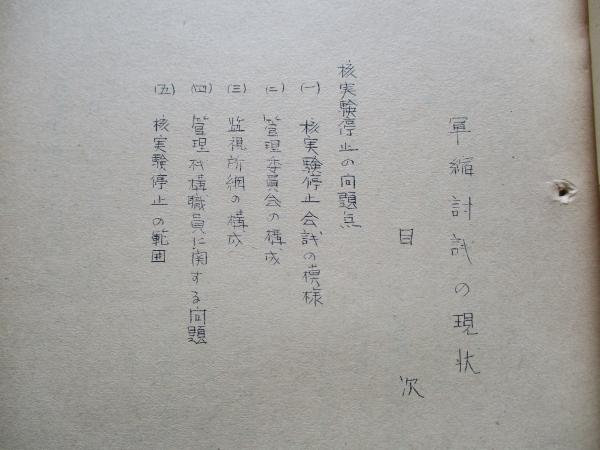 軍縮討議の現状
目次
核実験停止の問題点
(一) 核実験停止会議の模様
(二) 管理委員会の構成
(三) 監視所網の構成
(四) 管理機構職員に関する問題
(五) 核実験停止の範囲